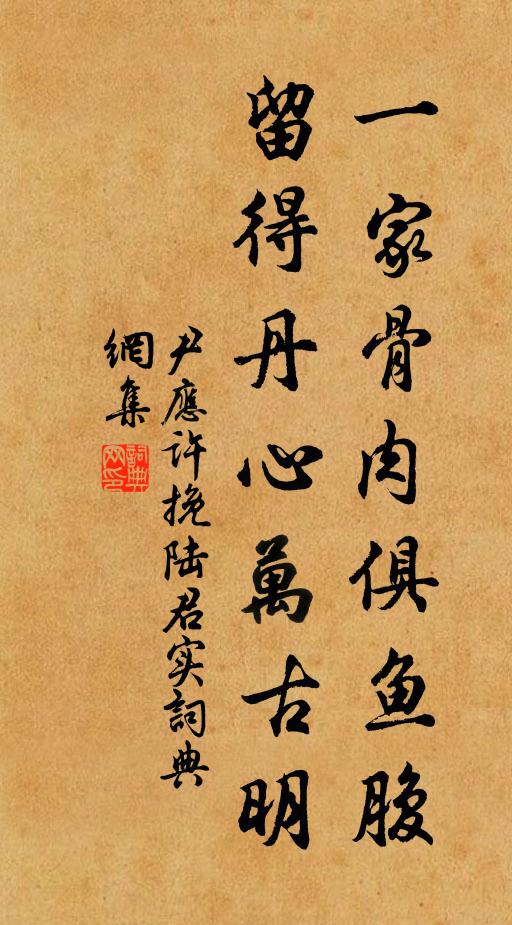 一家骨肉俱鱼腹
留得丹心萬古明
尹應许挽陆君实詞典
網集
詞典
网印